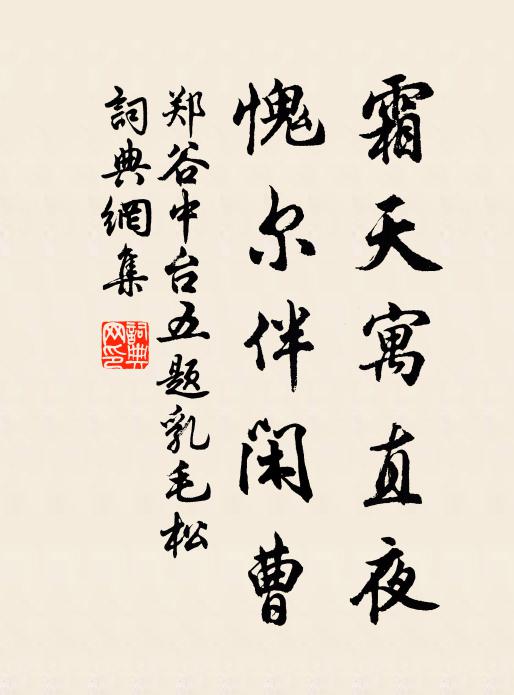 霜天寓直夜
愧尔伴閑曹
郑谷中台五题乳毛松
詞典網集
詞典網印